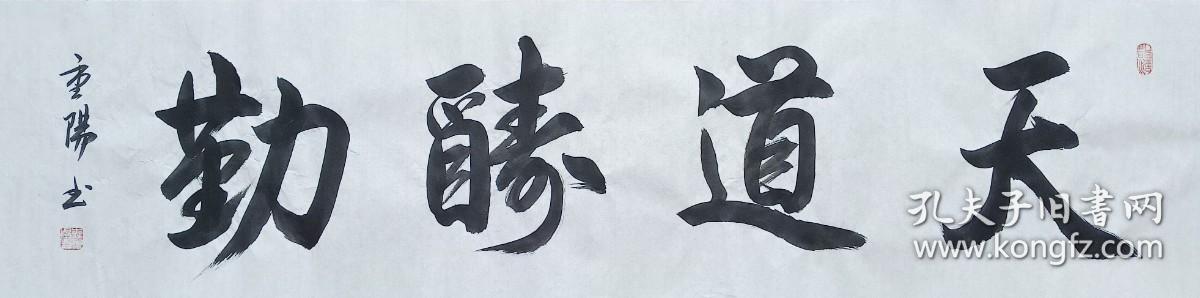 天道酬勤
重陽书
孔夫子旧書网
www.kongfz.com